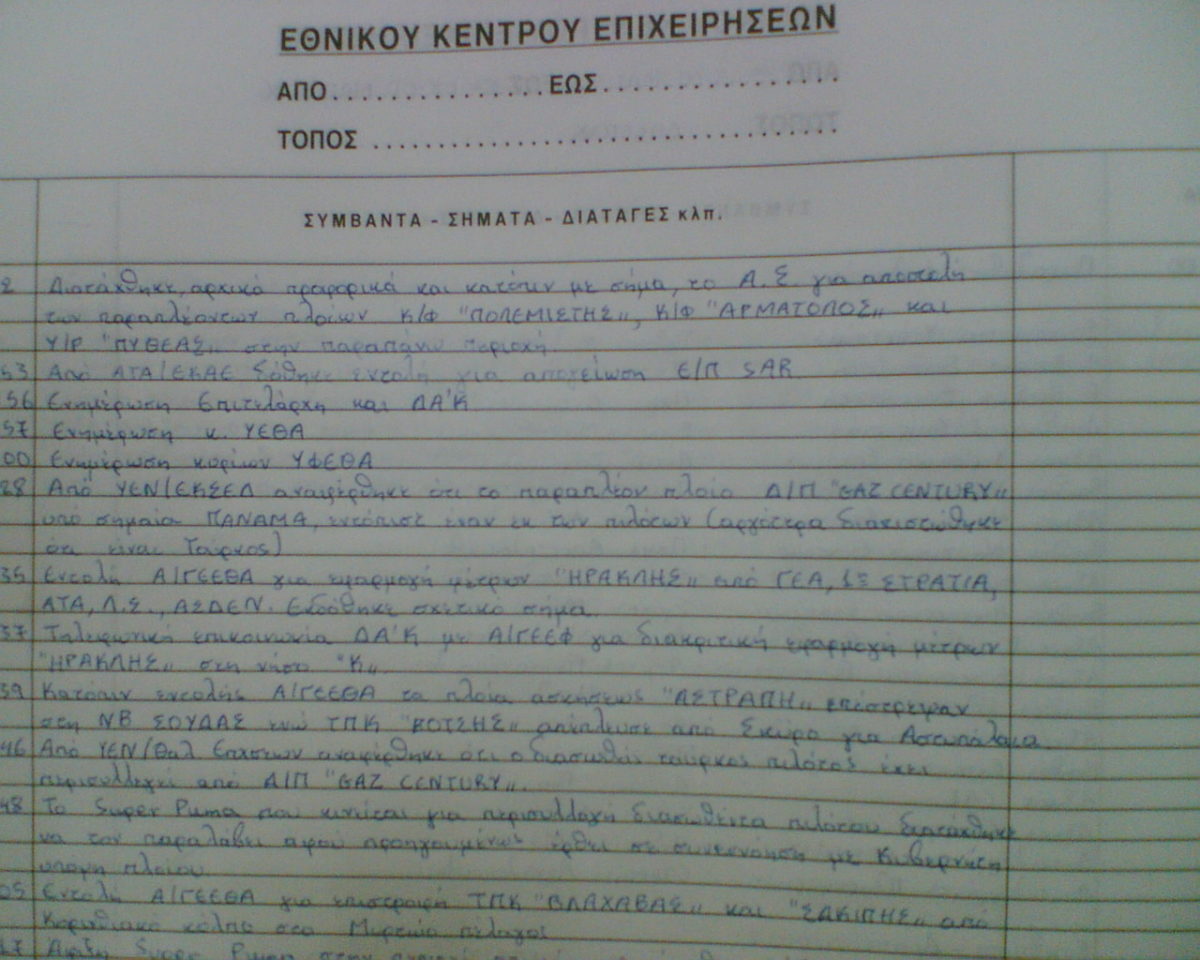 ΕΘΝΙΚΟΥ ΚΕΝΤΡΟΥ ΕΠΙΧΕΙΡΗΣΕΩΝ
ΑΠΟ................ΕΩΣ..................
ΤΟΠΟΣ ....................................
ΣΥΜΒΑΝΤΑ - ΣΗΜΑΤΑ - ΔΙΑΤΑΓΕΣ κλπ.
2 Διατάχθηκε, αρχικά προφορικά και κατόπιν με σήμα, το Λ.Σ. για αποστολή
των παραπλεόντων πλοίων Κ/Φ "ΠΟΛΕΜΙΣΤΗΣ", Κ/Φ "ΑΡΜΑΤΟΛΟΣ" και
Υ/Ρ "ΠΥΘΕΑΣ" στην παραπάνω περιοχή.
53 Από ΑΤΑ/ΕΚΑΕ δόθηκε εντολή για απογείωση Ε/Π SAR
56 Ενημέρωση Επιτελάρχη και ΔΑ'Κ
57 Ενημέρωση κ. ΥΕΘΑ
00 Ενημέρωση κυρίων ΥΦΕΘΑ
28 Από ΥΕΝ/ΕΚΣΕΔ αναφέρθηκε ότι το παραπλέον πλοίο Δ/Π "GAZ CENTURY"
υπό σημαία ΠΑΝΑΜΑ, εντόπισε έναν εκ των πιλότων (αργότερα διαπιστώθηκε
ότι είναι Τούρκος)
35 Εντολή Α/ΓΕΕΘΑ για εφαρμογή μέτρων "ΗΡΑΚΛΗΣ" από ΓΕΑ, 1η ΣΤΡΑΤΙΑ,
ΑΤΑ, Λ.Σ., ΑΣΔΕΝ. Εκδόθηκε σχετικό σήμα.
37 Τηλεφωνική επικοινωνία ΔΑ'Κ με Α/ΓΕΕΦ για διακριτική εφαρμογή μέτρων
"ΗΡΑΚΛΗΣ" στη νήσο "Κ".
39 Κατόπιν εντολής Α/ΓΕΕΘΑ τα πλοία ασκήσεως "ΑΣΤΡΑΠΗ" επέστρεψαν
στη ΝΒ ΣΟΥΔΑΣ ενώ ΤΠΚ "ΒΟΤΣΗΣ" απέπλευσε από Σκύρο για Αστυπάλαια.
46 Από ΥΕΝ/Θαλ Επ/σεων αναφέρθηκε ότι ο διασωθείς τούρκος πιλότος έχει
περισυλλεγεί από Δ/Π "GAZ CENTURY".
48 Το Super Puma που κινείται για περισυλλογή διασωθέντα πιλότου διατάχθηκε
να τον παραλάβει αφού προηγουμένως έρθει σε συνεννόηση με Κυβερνήτη
υπόψη πλοίου
05 Εντολή Α/ΓΕΕΘΑ για επιστροφή ΤΠΚ "ΒΛΑΧΑΒΑΣ" και "ΣΑΚΙΠΗΣ" από
Κορινθιακό κόλπο στο Μυρτώο πέλαγος
17 Άφιξη Super Puma στην